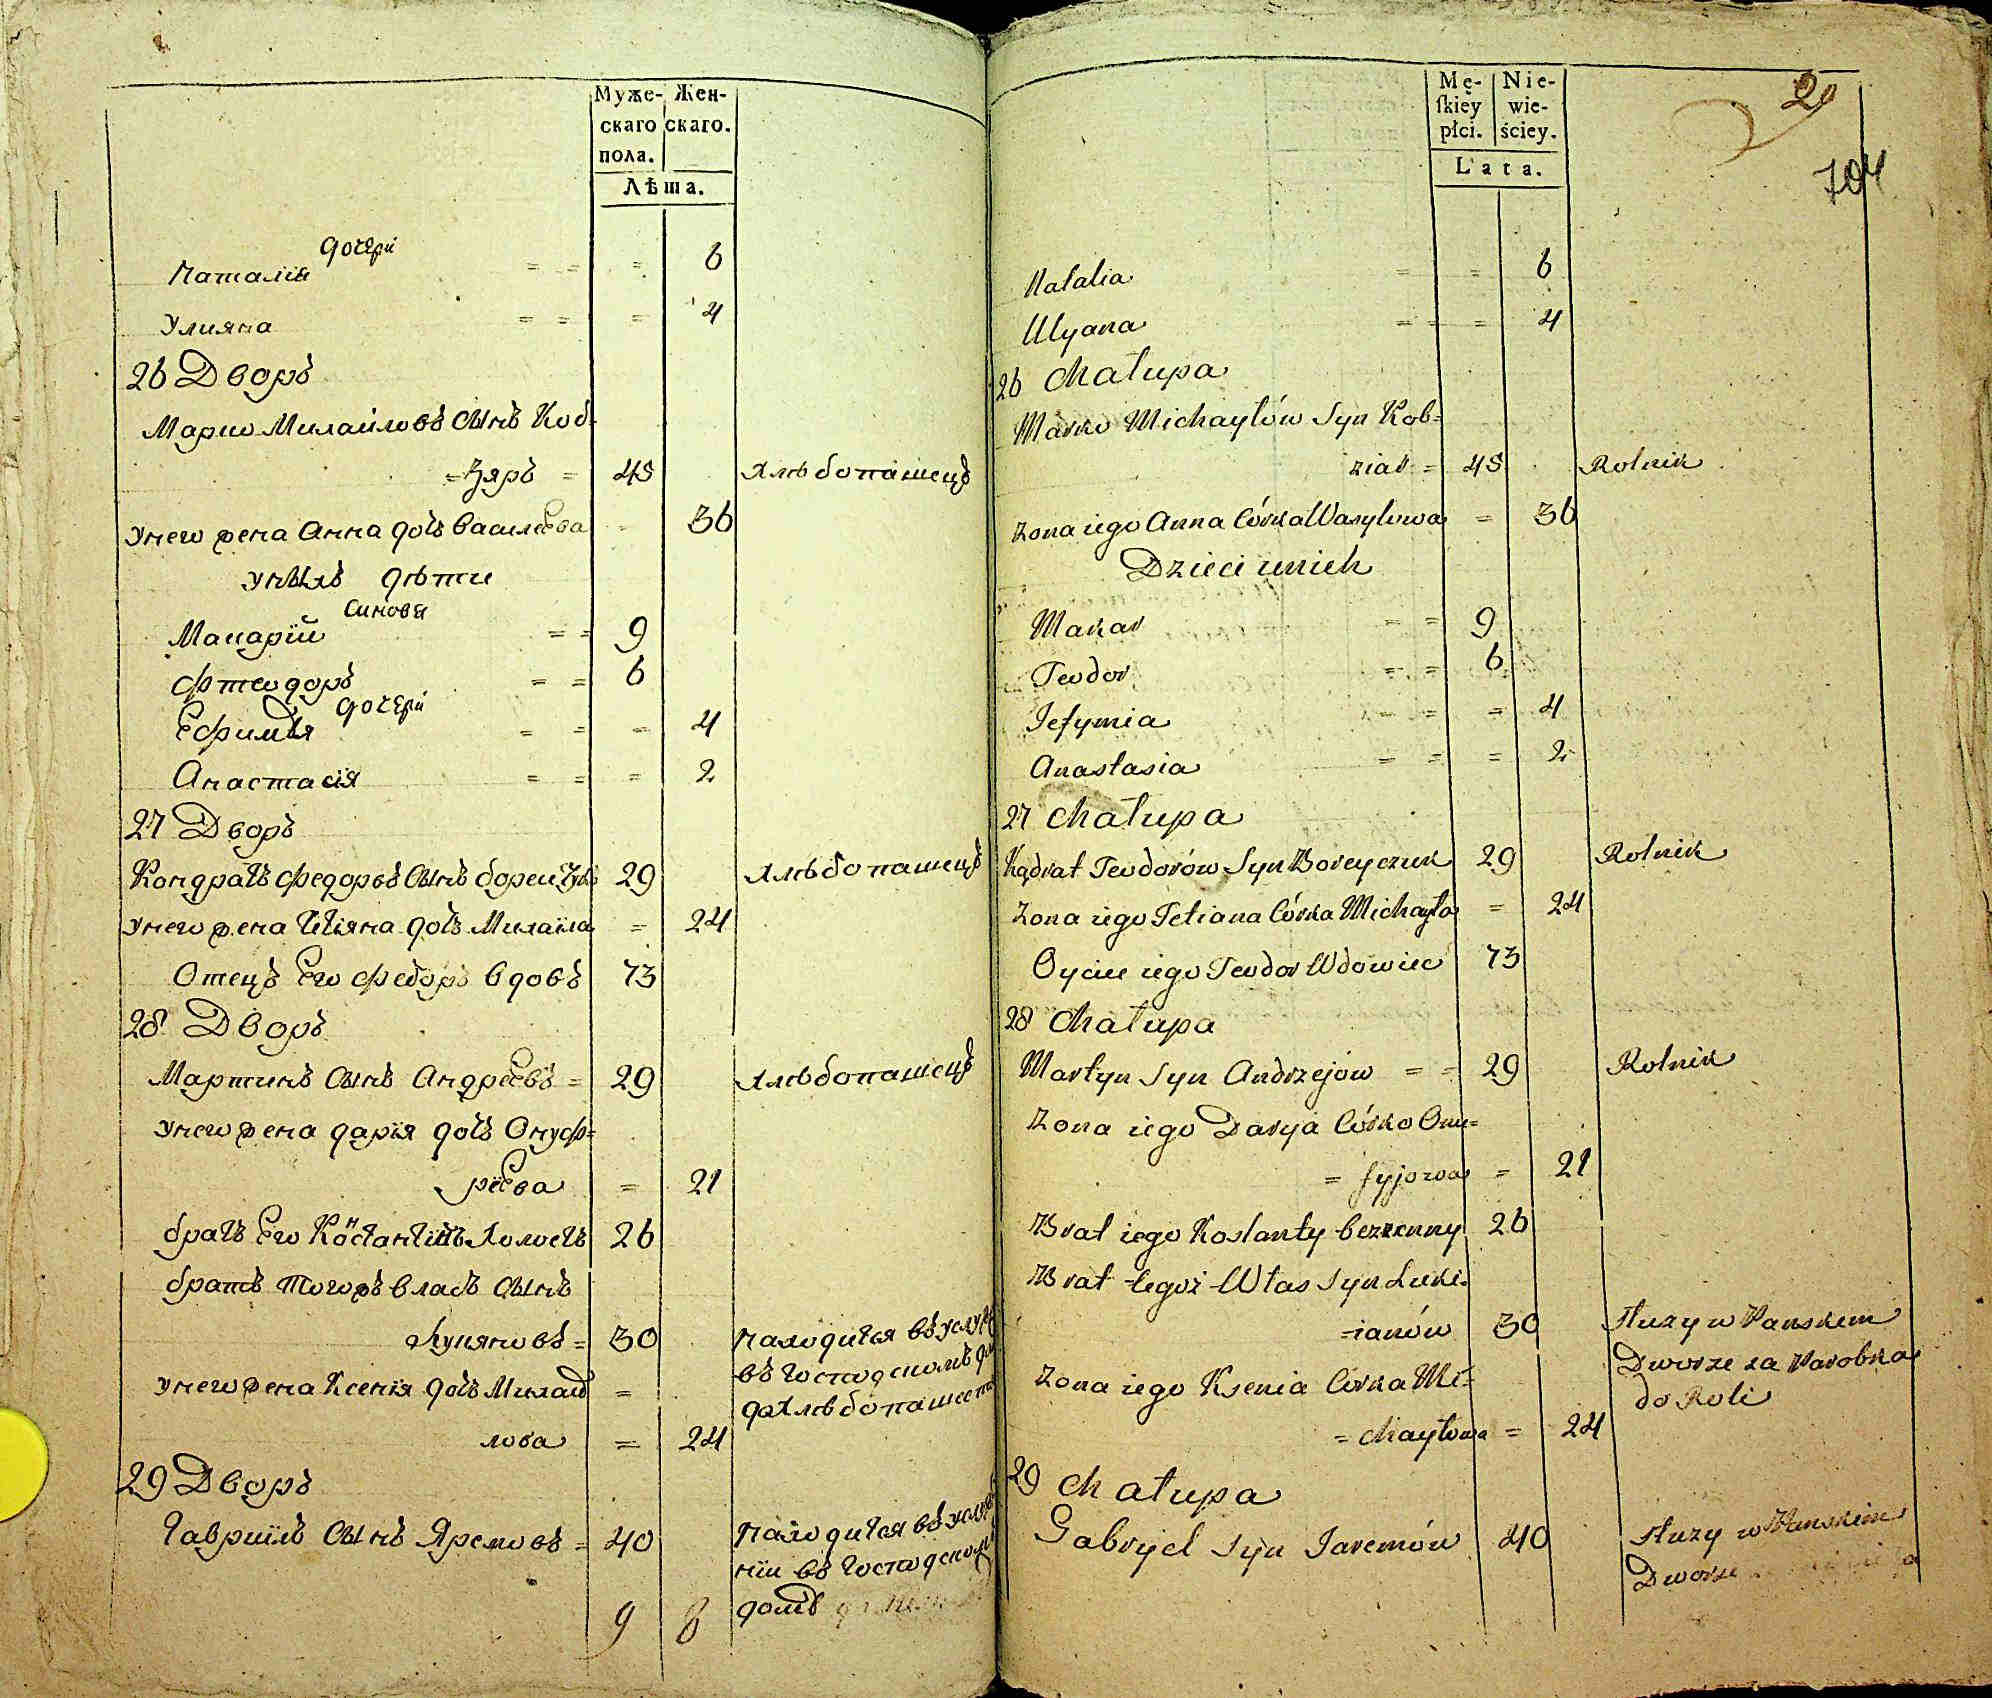 Муже- Жен-
скаго скаго.
пола.
Лѣта.
дочери
Наталія = = = 6
Улияна = = = 4
26 Дворъ
Марко Михайловъ Сынъ Коб-
=зяръ = 45 Хлѣбопашецъ
Унего жена Анна дочъ Василѣева = 36
Унихъ дѣти
Синовя
Макарій = = 9
Фтеодоръ = = 6
дочери
Ефимія = = = 4
Анастасія = = = 2
27 Дворъ
Кондратъ Федоровъ Сынъ бореичукъ 29 Хлѣбопашецъ
Унего жена Тетіяна дочъ Михайла = 24
Отецъ Его Федоръ вдовъ 73
28 Дворъ
Мартинъ Сынъ Андреевъ = 29 Хлѣбопашецъ
Унего жена дарія дочъ Онуф=
ріева = 21
братъ Его Константинъ Холостъ 26
братъ Тогожъ власъ Сынъ
Лукяновъ = 30 Находится въ услу
въ Господскомъ
Унего жена Ксенія дочъ Михай =
для хлѣбопашест
лова = 24
29 Дворъ
Гавриилъ Сынъ Яремовъ = 40 Находится въ услуже
ніи въ Господском
домѣ
9 8
Mę- Nie-
ſkiey wie-
płci. ściey.
Lata.
20
704
Natalia = = 6
Ulyana = = 4
26 Chałupa
Marko Michayłów Syn Kob=
ziar = 45 Rolnik
Zona iego Anna Córka Wasylowa = 36
Dzieci unich
Makar = = 9
Teodor = = 6
Jefymia = = = 4
Anastasia = = = 2
27 Chałupa
Kądrat Teodorów Syn Boreyczuk 29 Rolnik
Zona iego Tetiana Córka Michayła = 24
Oyciec iego Teodor Wdowiec 73
28 Chałupa
Martyn Syn Andrzejów = = 29 Rolnik
Zona iego Darya Córka Onu=
= fryjowa = 21
Brat iego Kostanty bezzenny 26
Brat tegoż Włas Syn Luki=
=ianów 30 Słuzy w Panskem
Dworze za Parobka
Zona iego Ksenia Córka Mi=
do Roli
= chayłowa = 24
29 Chałupa
Gabryel Syn Jaremów 40 Słuzy w Panskim
Dworze